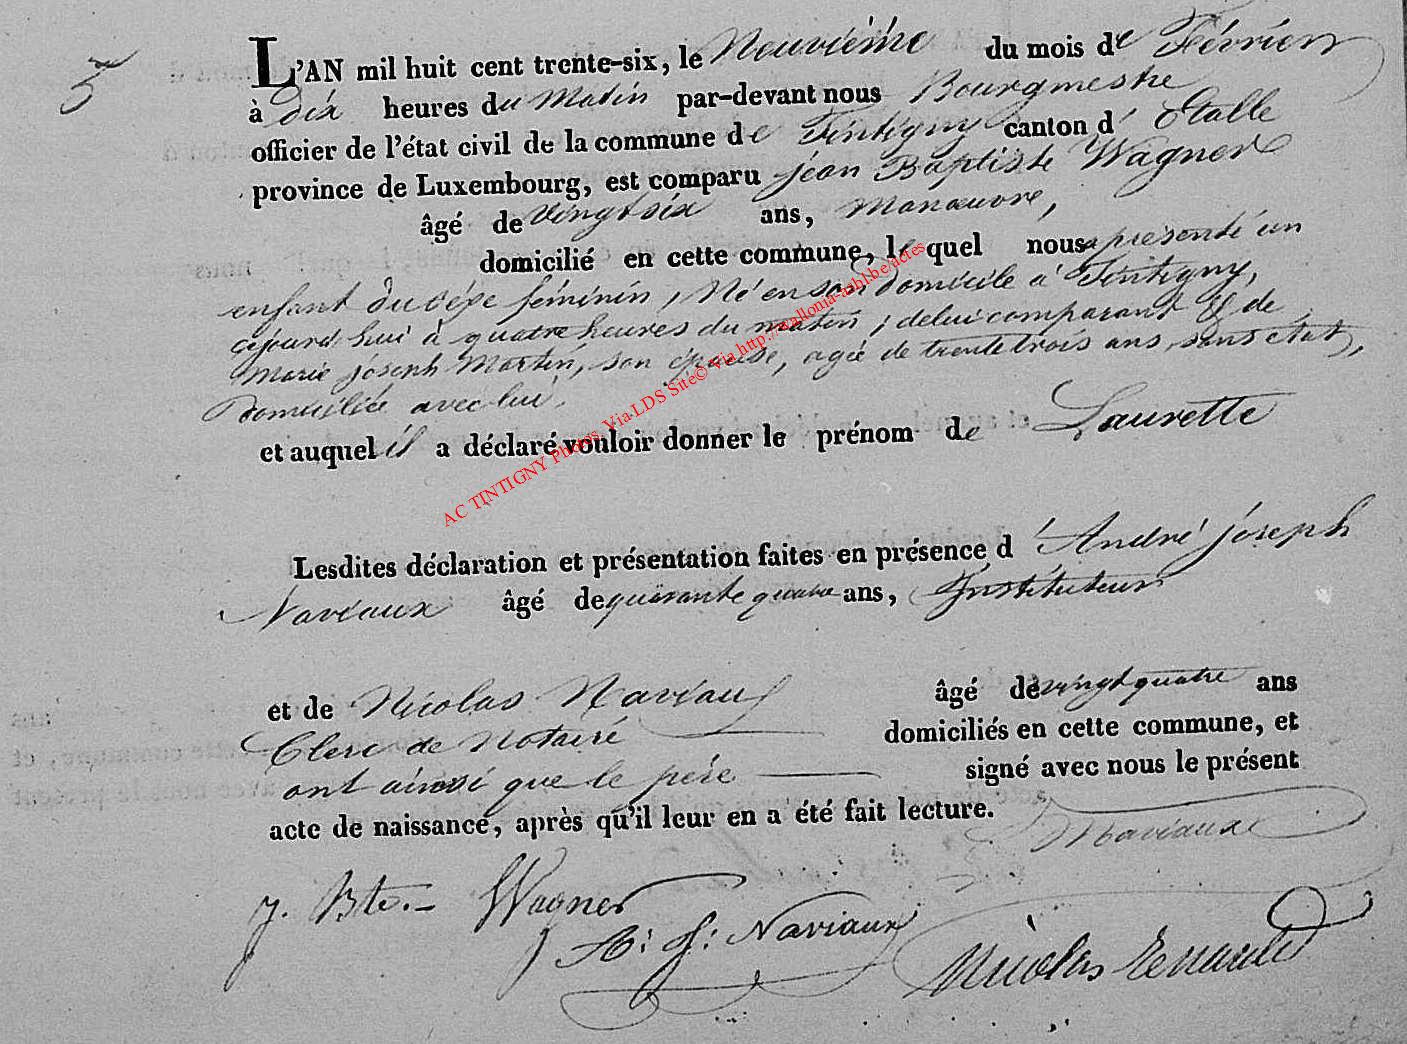 5
L'AN mil huit cent trente-six, le Neuvième du mois de Février
à dix heures du Matin par-devant nous Bourgmestre
officier de l'état civil de la commune de Tintigny canton d' Etalle
province de Luxembourg, est comparu jean Baptiste Wagner
âgé de vingt six ans, manœuvre,
domicilié en cette commune, le quel nous a présenté un
enfant du sexe féminin, Né en son domicile à Tintigny,
à quatre heures du matin, de lui comparant & de
Marie joseph Martin, son épouse, agée de trente trois ans, sans état,
Domiciliée avec lui.
et auquel il a déclaré vouloir donner le prénom de Laurette
AC TINTIGNY Photos Via LDS Site© Via http://wallonia-asbl.be/actes
Lesdites déclaration et présentation faites en présence d' André joseph
Naviaux âgé de quarante quatre ans, Instituteur
et de Nicolas Naviaux âgé de vingt quatre ans
Clerc de Notaire domiciliés en cette commune, et
ont ainsi que le père signé avec nous le présent
acte de naissance, après qu'il leur en a été fait lecture.
Naviaux
J. Bte. Wagner
A: J: Naviaux
Nicolas Renauld